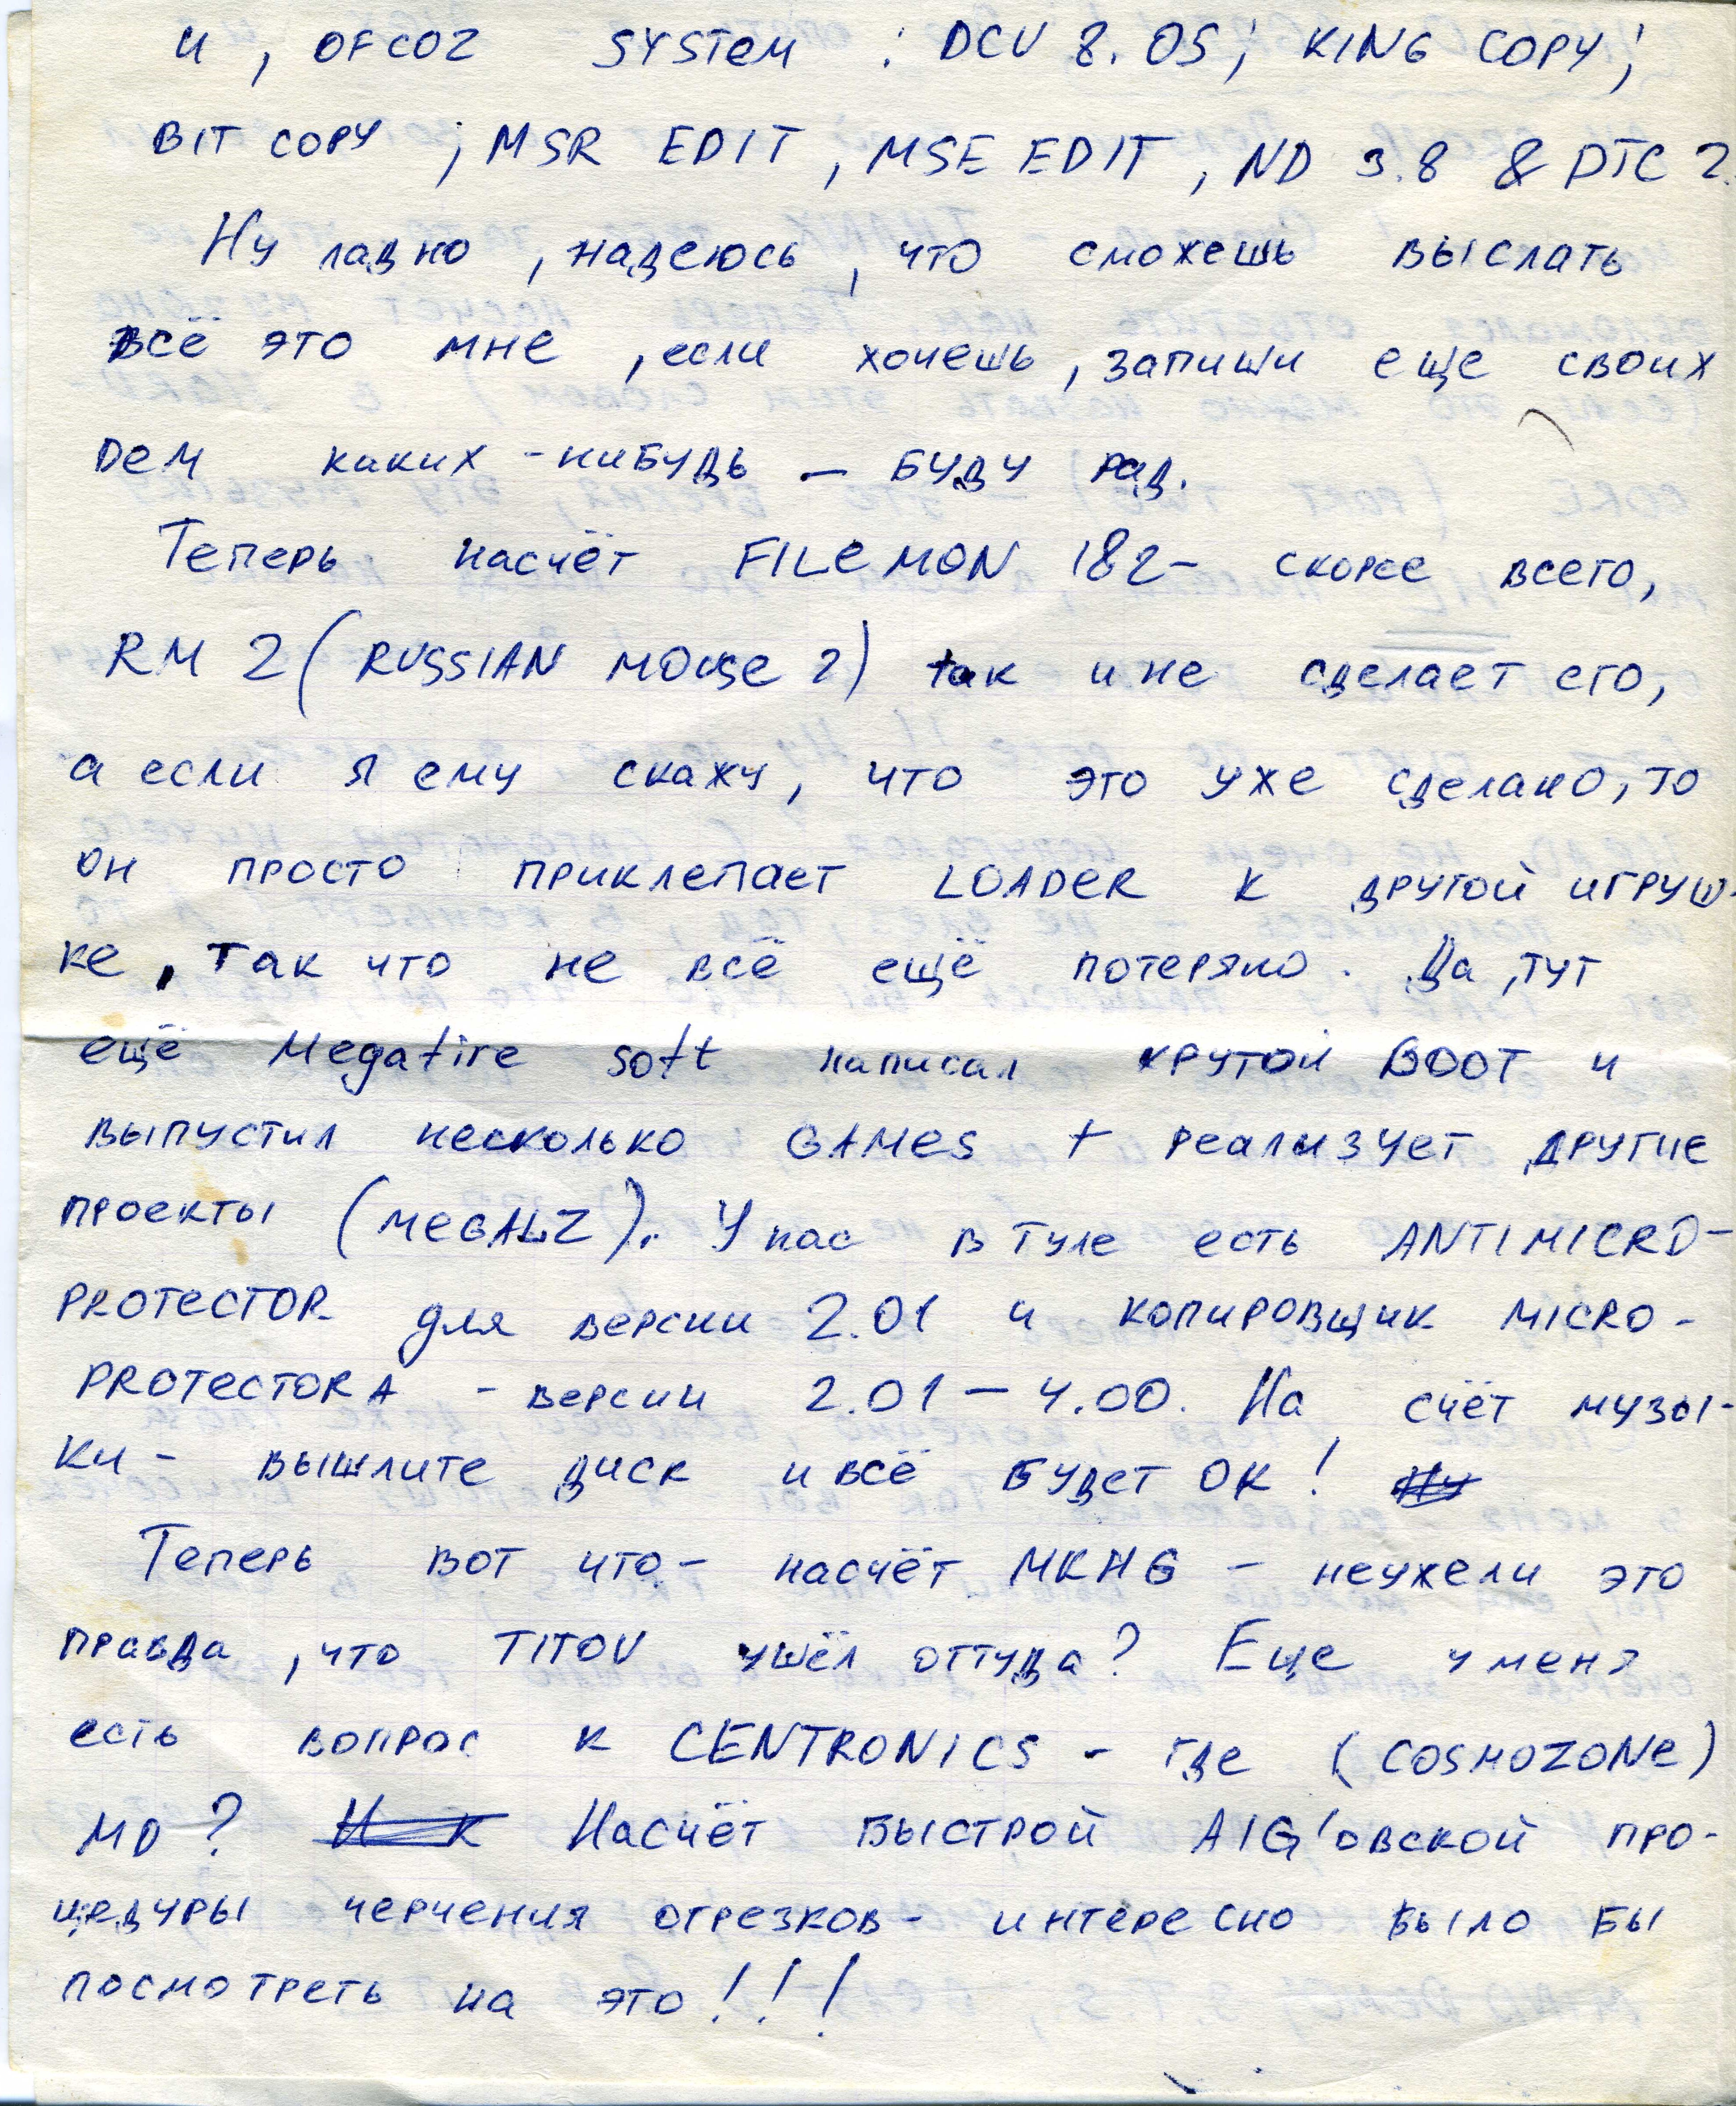 и, OFCOZ SYSTEM : DCU 8.05; KING COPY;
BIT COPY ; MSR EDIT, MSE EDIT, ND 3.8 & DTC 2.
Ну ладно, надеюсь, что сможешь выслать
всё это мне, если хочешь, запиши еще своих
дем каких-нибудь – буду рад.
Теперь насчёт FILEMON 182 – скорее всего,
RM 2 (RUSSIAN MOUSE 2) так и не сделает его,
а если я ему скажу, что это уже сделано, то
он просто приклепает LOADER к другой игруш-
ке, так что не всё ещё потеряно. Да, тут
ещё Megafire soft написал крутой BOOT и
выпустил несколько GAMES + реализует другие
проекты (MEGALZ). У нас в Туле есть ANTIMICRO-
PROTECTOR для версии 2.01 и копировщик MICRO-
PROTECTORA - версии 2.01 – 4.00. На счёт музы-
ки - вышлите диск и всё будет OK!
Теперь вот что - насчёт MKHG – неужели это
правда, что TITOV ушёл оттуда? Еще у меня
есть вопрос к CENTRONICS - где (COSMOZONE)
MD? Насчёт быстрой AIG'овской про-
цедуры черчения отрезков - интересно было бы
посмотреть на это!!!